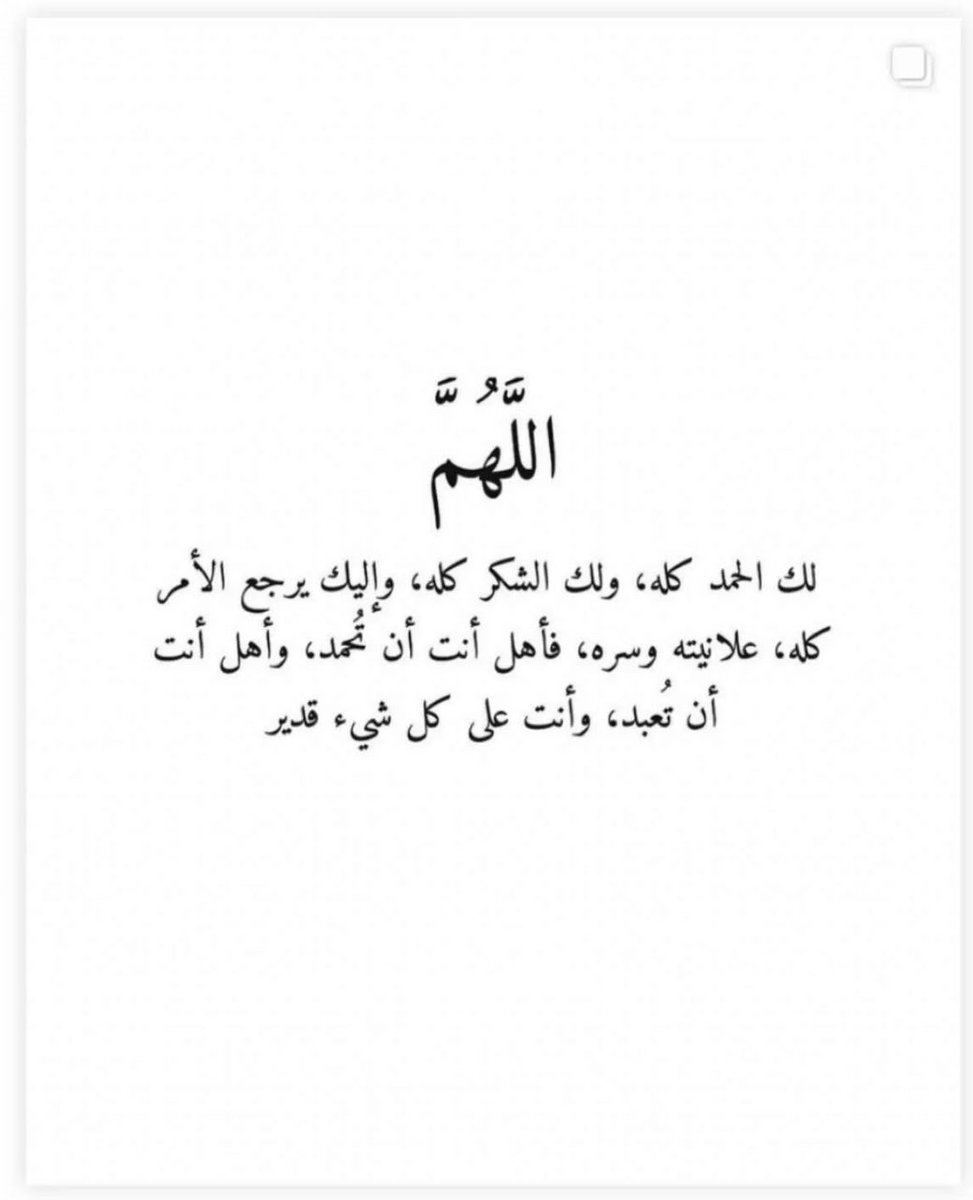 اللَّهُمَّ
لك الحمد كله، ولك الشكر كله، وإليك يرجع الأمر
كله، علانيته وسره، فأهل أنت أن تُحمد، وأهل أنت
أن تُعبد، وأنت على كل شيء قدير